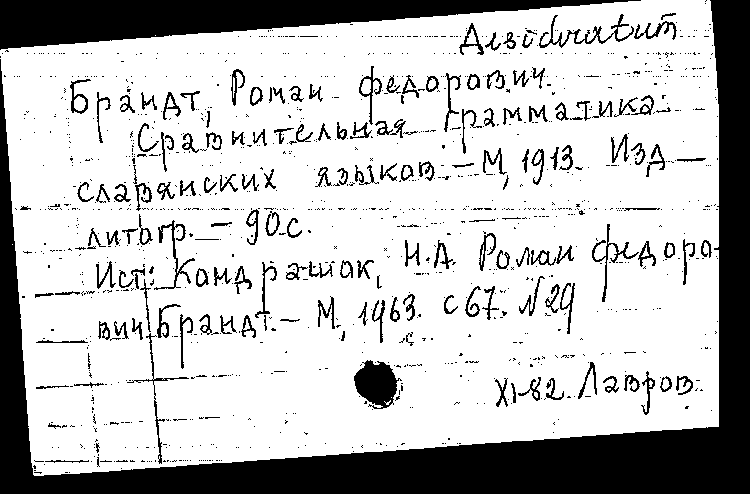 Desideratum
Брандт, Роман Федорович.
Сравнительная грамматика
славянских языков. – М, 1913. Изд –
литогр. – 90 с.
Ист: Кондрашок, Н.А. Роман Федоро-
вич Брандт. – М, 1963. С 67. N 29
XI-82. Лавров.